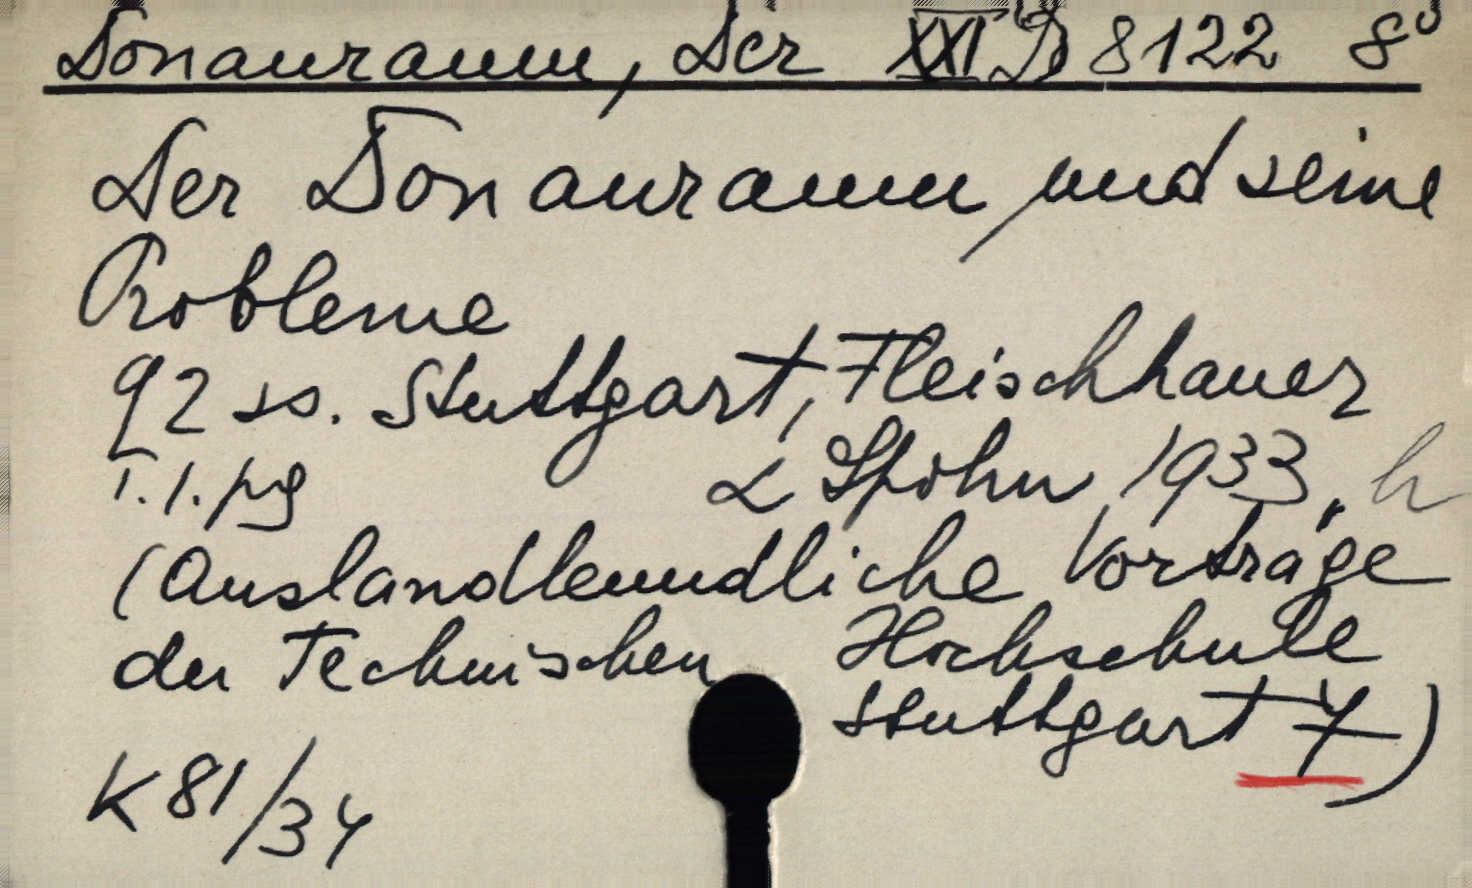 Donauraum, Der XXI D 8122 8°
Der Donauraum und seine
Probleme
92 ss. Stuttgart, Fleischhauer
T.1.pg & Spohn 1933. h
(Auslandkundliche Vorträge
der Technischen Hochschule
Stuttgart 7)
K 81/34